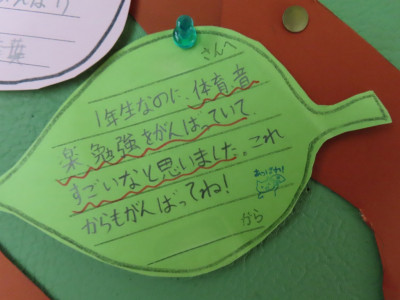 さんへ
1年生なのに、体育、音
楽、勉強をがんばっていて
すごいなと思いました。これ
からもがんばってね！
から